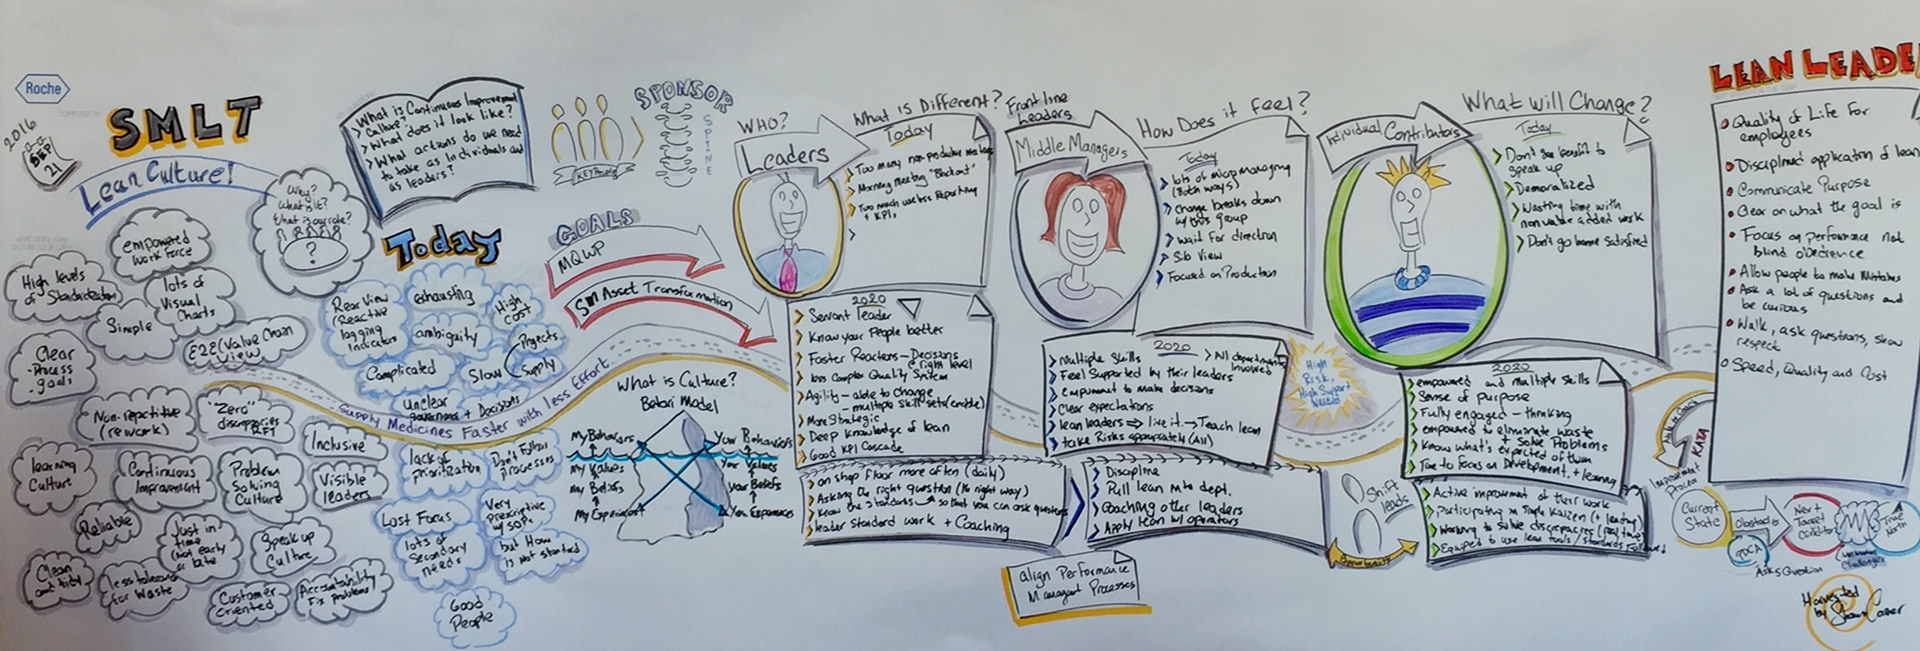 Roche
2016
SEP
21
SMLT
Lean Culture!
Why?
What is it?
What is our role?
?
What is Continuous Improvement
Culture?
> What does it look like?
> What actions do we need
to take as individuals and
as leaders?
SPONSOR
SPINE
GOALS
MQWP
SM Asset Transformation
empowered
work force
High levels
of Standardization
lots of
Visual
Charts
Simple
E2E (Value Chain
View)
Clear
-Process
-goals
Non-repetitive
(rework)
"Zero"
discrepancies
RFT
Inclusive
learning
Culture
Continuous
Improvement
Problem
Solving
Culture
Visible
leaders
Reliable
Just in
time
(Not early
or late)
Speak up
Culture
Clean
and tidy
less tolerance
for waste
Customer
oriented
Accountability
Fix problems!
Today
Rear View
Reactive
logging
Indicators
exhausting
High
Cost
ambiguity
Projects
Supply
Complicated
Slow
Unclear
governance + Decisions
Supply Medicines Faster with less Effort.
lack of
prioritization
Don't Follow
processes
Lost Focus
Very
prescriptive
w/ SOPs
but How
is not standard
lots of
Secondary
needs
Good
People
What is Culture?
Betari Model
My Behaviors
My Values
My Beliefs
My Experiences
Your Behaviors
Your Values
Your Beliefs
Your Experiences
WHO?
Leaders
What is Different?
Today
Too many non productive meetings
Morning Meeting "Blackout"
Too much useless Reporting
+ KPIs
2020
Servant Leader
Know your People better
Faster Reactions - Decisions
@ right level
less Complex Quality System
Agility - able to Change
- multiple skill sets (enable)
More Strategic
Deep Knowledge of lean
Good KPI Cascade
on shop floor more often (daily)
Asking the right question (the right way)
Know the standards so that you can ask questions
leader Standard work + Coaching
Front line
Leaders
Middle Managers
How Does it Feel?
Today
lots of micromanaging
(Both ways)
Change breaks down
w/ this group
Wait for direction
Silo View
Focused on Production
2020
Multiple Skills
> All departments
Involved
Feel Supported by their leaders
Empowerment to make decisions
Clear expectations
lean leaders ⇒ live it → Teach lean
take Risks appropriately (All)
High
Risk,
High Support
Needed
Discipline
Pull lean into dept.
Coaching other leaders
Apply lean w/ operators
align Performance
Managmt Processes
Individual Contributors
What will Change?
Today
Don't see benefit to
speak up
Demoralized
Wasting time with
non value added work
Don't go home satisfied
2020
empowered and multiple skills
Sense of purpose
Fully engaged - thinking
empowered to eliminate waste
+ solve Problems
Know what's expected of them
Time to focus on Development + learning
Shift
leads
Opportunity
Active improvement of their work
Participating in Simple Kaizen (+ leading)
Working to solve discrepancies (real time)
Equiped to use lean tools / Standards followed
LEAN LEADE
Quality of Life for
employees
Disciplined application of lean
Communicate Purpose
Clear on what the goal is
Focus on performance not
blind obedience
Allow people to make Mistakes
Ask a lot of questions and
be curious
Walk, ask questions, show
respect
Speed, Quality and Cost
KATA
Improvement
Process
Current
State
Obstacles
PDCA
Ask 5 Question
Next
Target
Condition
Challenges
True
North
Harvested
by